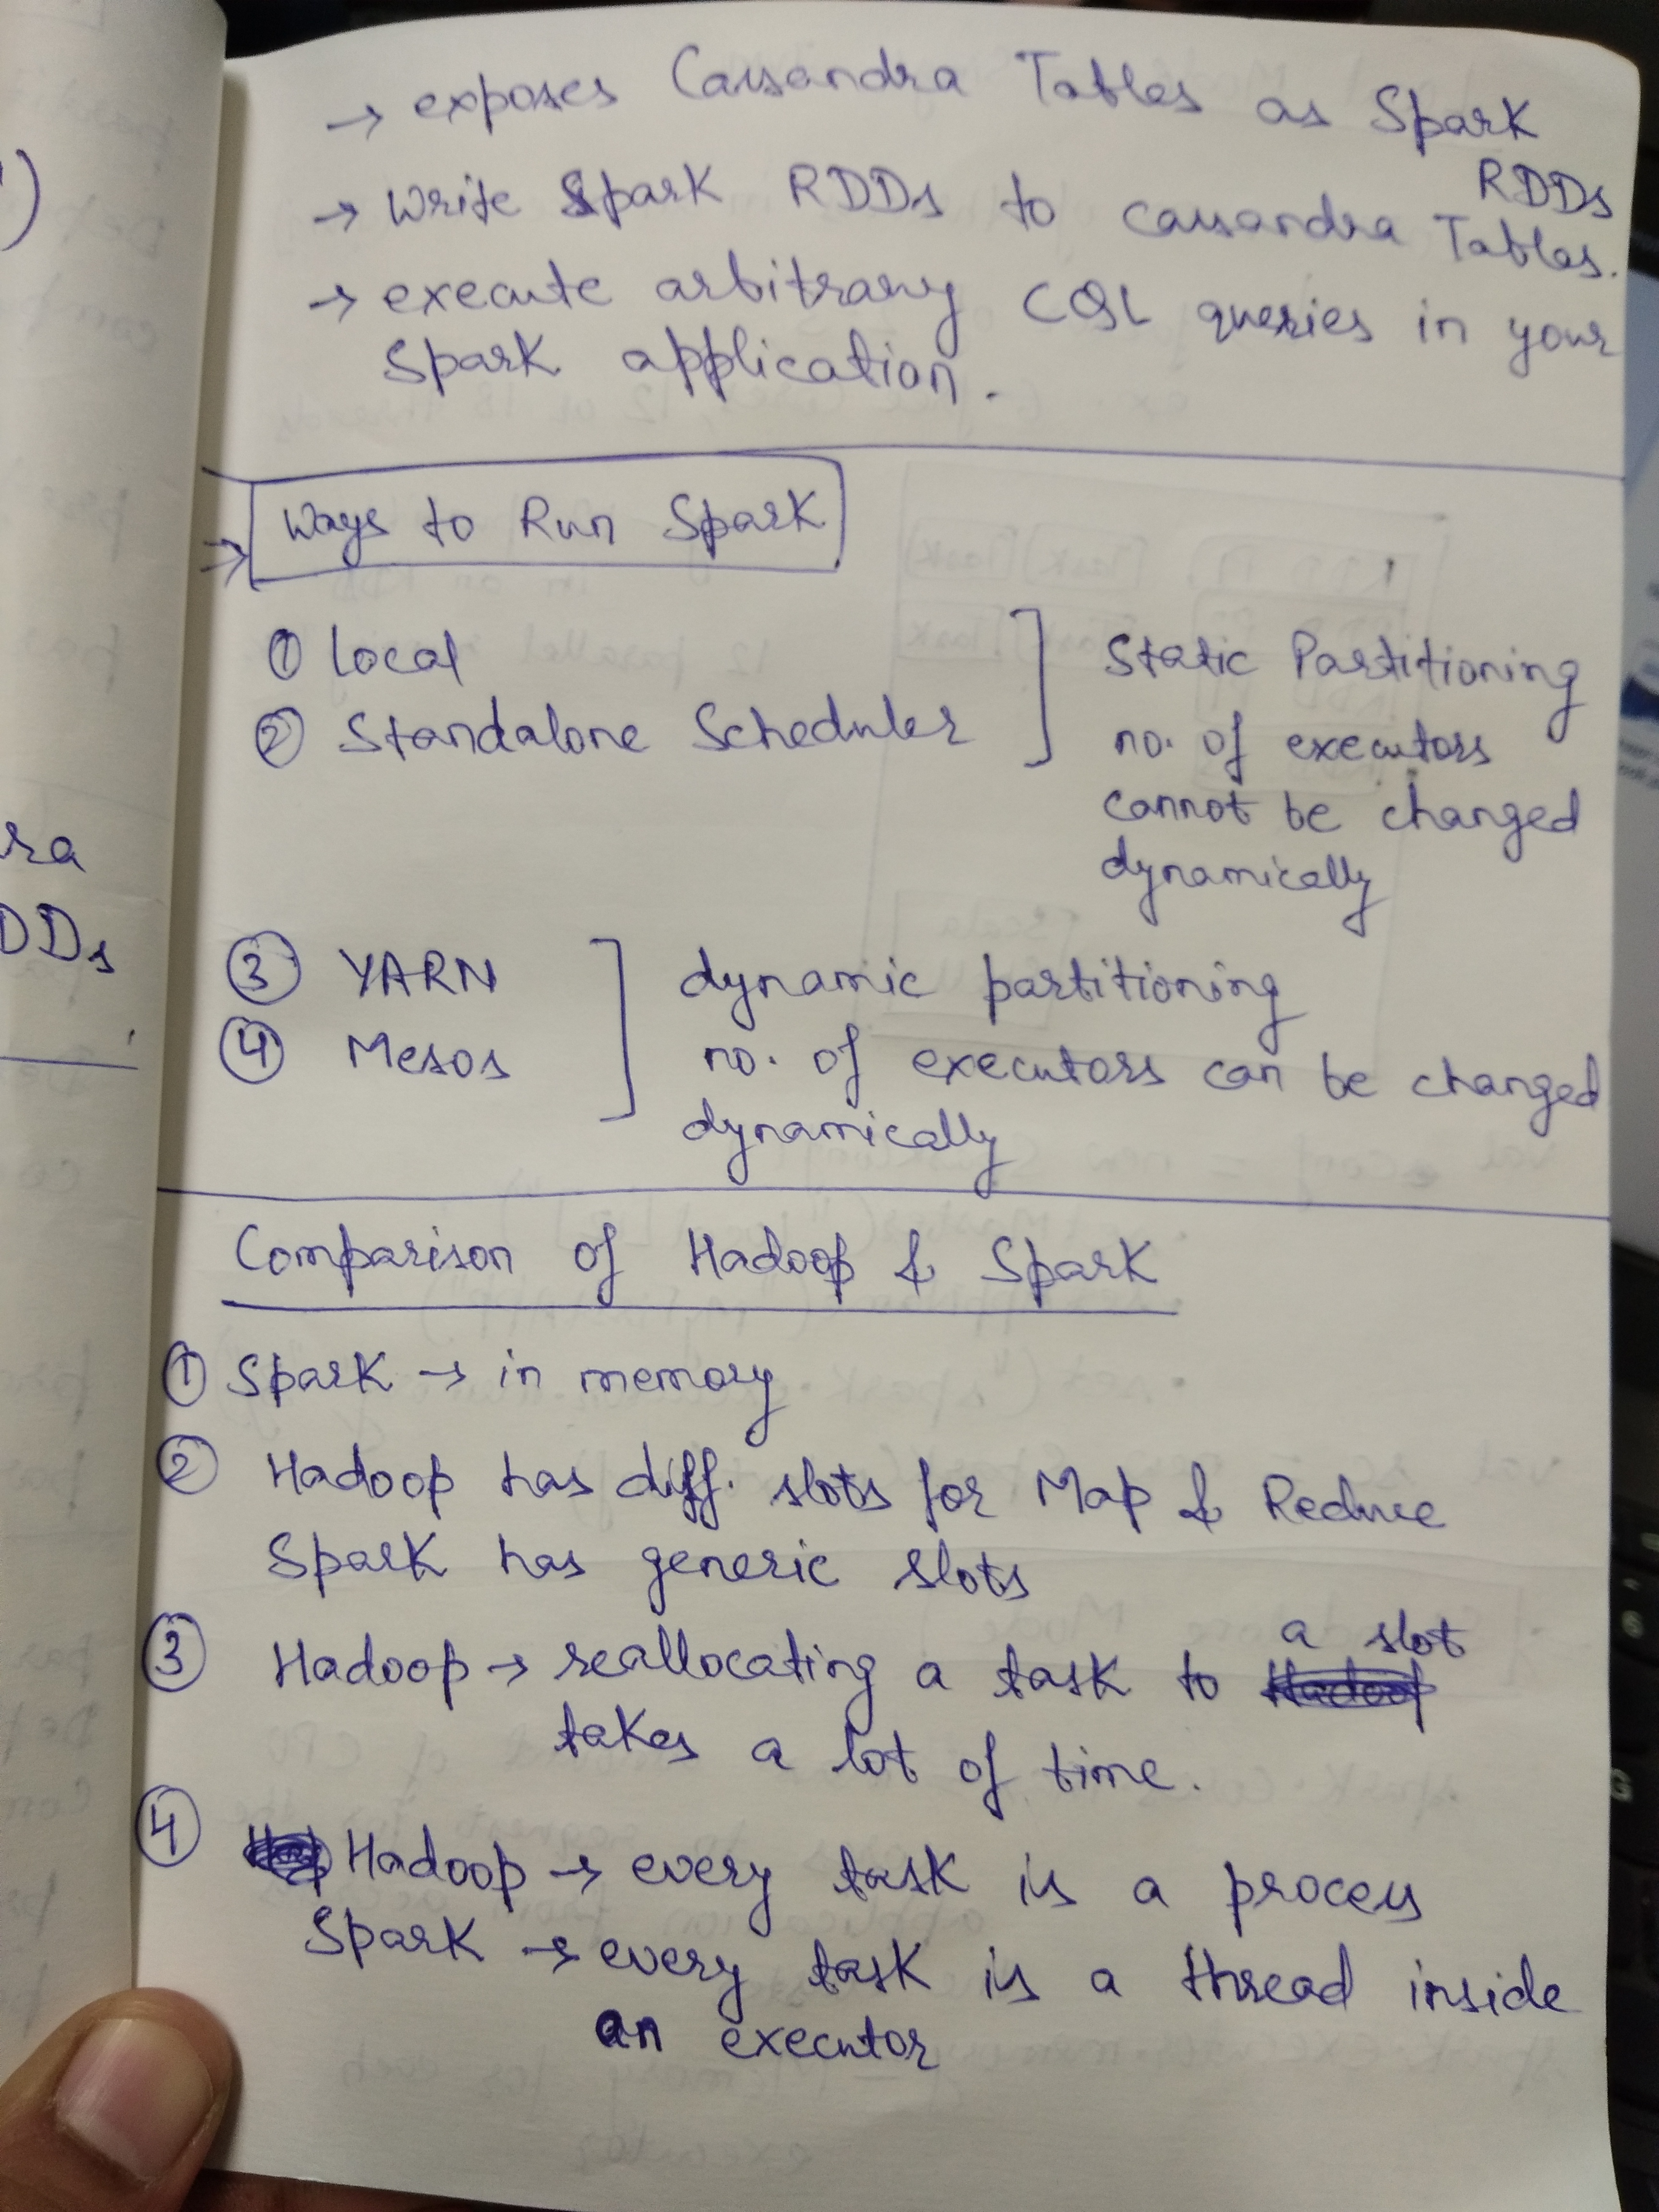 → exposes Cassandra Tables as Spark
RDDs
→ Write Spark RDDs to Cassandra Tables.
→ execute arbitrary CQL queries in your
Spark application.
Ways to Run Spark
① Local
② Standalone Scheduler
Static Partitioning
no. of executors
cannot be changed
dynamically
③ YARN
④ Mesos
dynamic partitioning
no. of executors can be changed
dynamically
Comparison of Hadoop & Spark
① Spark → in memory
② Hadoop has diff. slots for Map & Reduce
Spark has generic slots
a slot
③ Hadoop → reallocating a task to
takes a lot of time.
④ Hadoop → every task is a process
Spark → every task is a thread inside
an executor
ra
DDs